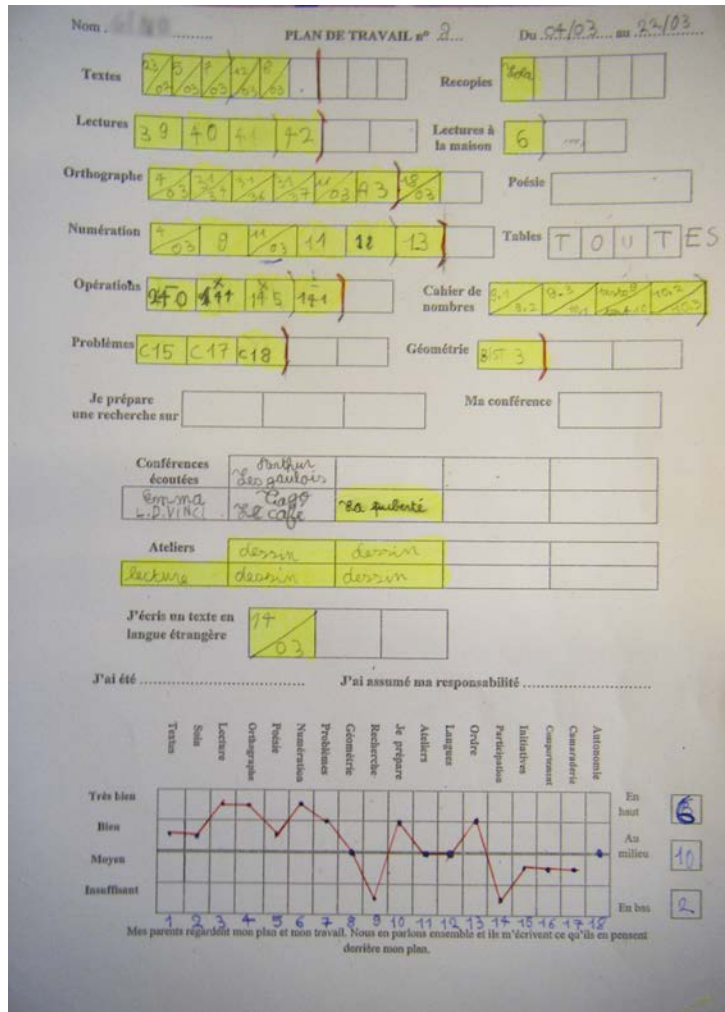 Nom . ......... PLAN DE TRAVAIL n° 2... Du 04/03... au 22/03
Textes 23/02 5/03 7/03 12/03 8/03 Recopies Lola
Lectures 39 40 41 42 Lectures à la maison 6
Orthographe 4/03 31/34 31/36 31/37 11/03 A3 18/03 Poésie
Numération 4/03 8 11/03 11 12 13 Tables TOUTES
Opérations 240 141 145 141 Cahier de nombres
Problèmes C15 C17 C18 Géométrie BIST 3
Je prépare une recherche sur Ma conférence
Conférences écoutées Arthur Les gaulois
Emma L.D.VINCI Gago Le café La puberté
Ateliers dessin dessin
lecture dessin dessin
J'écris un texte en langue étrangère 14/03
J'ai été ........................ J'ai assumé ma responsabilité ........................
Textes Soin Lecture Orthographe Poésie Numération Problèmes Géométrie Recherche Je prépare Ateliers Langues Ordre Participation Initiatives Comportement Camaraderie Autonomie
Très bien En haut 6
Bien
Moyen Au milieu 10
Insuffisant
En bas 2
1 2 3 4 5 6 7 8 9 10 11 12 13 14 15 16 17 18
Mes parents regardent mon plan et mon travail. Nous en parlons ensemble et ils m'écrivent ce qu'ils en pensent
derrière mon plan.